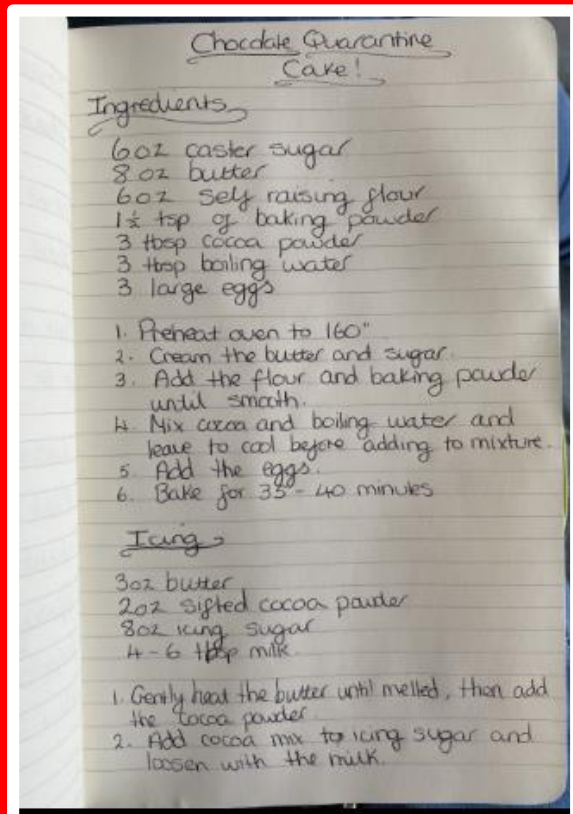 Chocolate Quarantine
Cake!
Ingredients
6oz caster sugar
8oz butter
6oz self raising flour
1½ tsp of baking powder
3 tbsp cocoa powder
3 tbsp boiling water
3 large eggs
1. Preheat oven to 160°
2. Cream the butter and sugar.
3. Add the flour and baking powder
until smooth.
4. Mix cocoa and boiling water and
leave to cool before adding to mixture.
5. Add the eggs.
6. Bake for 35 - 40 minutes
Icing
3oz butter
2oz sifted cocoa powder
8oz icing sugar
4 - 6 tbsp milk.
1. Gently heat the butter until melted, then add
the cocoa powder.
2. Add cocoa mix to icing sugar and
loosen with the milk.